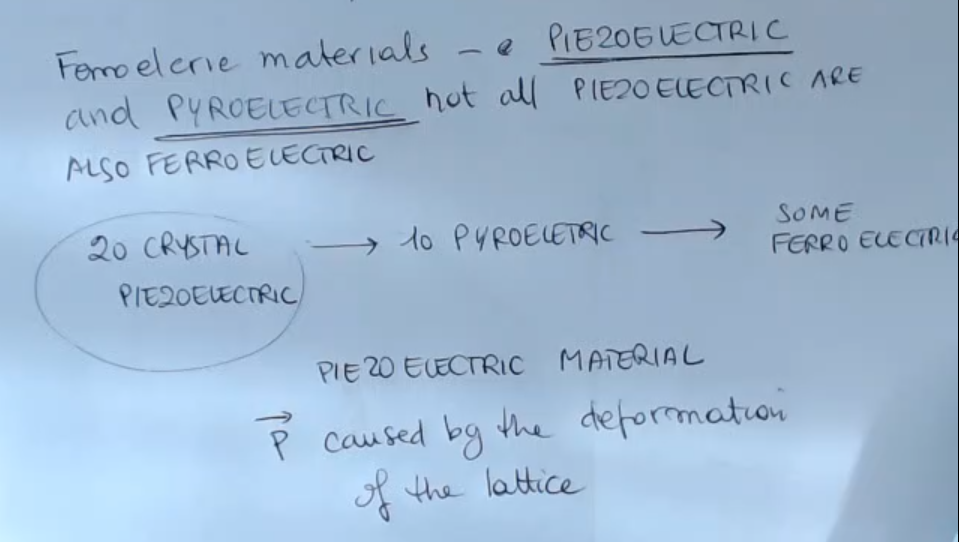 Ferroelcric materials – e PIEZOELECTRIC
and PYROELECTRIC not all PIEZOELECTRIC ARE
ALSO FERROELECTRIC
20 CRYSTAL → 10 PYROELETRIC → SOME
PIEZOELECTRIC
FERROELECTRIC
PIEZOELECTRIC MATERIAL
P caused by the deformation
of the lattice